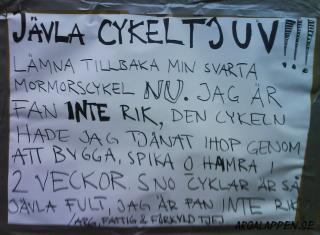 JÄVLA CYKELTJUV!!!
LÄMNA TILLBAKA MIN SVARTA
MORMORSCYKEL NU. JAG ÄR
FAN INTE RIK, DEN CYKELN
HADE JAG TJÄNAT IHOP GENOM
ATT BYGGA, SPIKA O HAMRA I
2 VECKOR. SNO CYKLAR ÄR SÅ
JÄVLA FULT, JAG ÄR FAN INTE RIK!
/ARG, FATTIG & FÖRKYLD TJEJ
ARGALAPPEN.SE